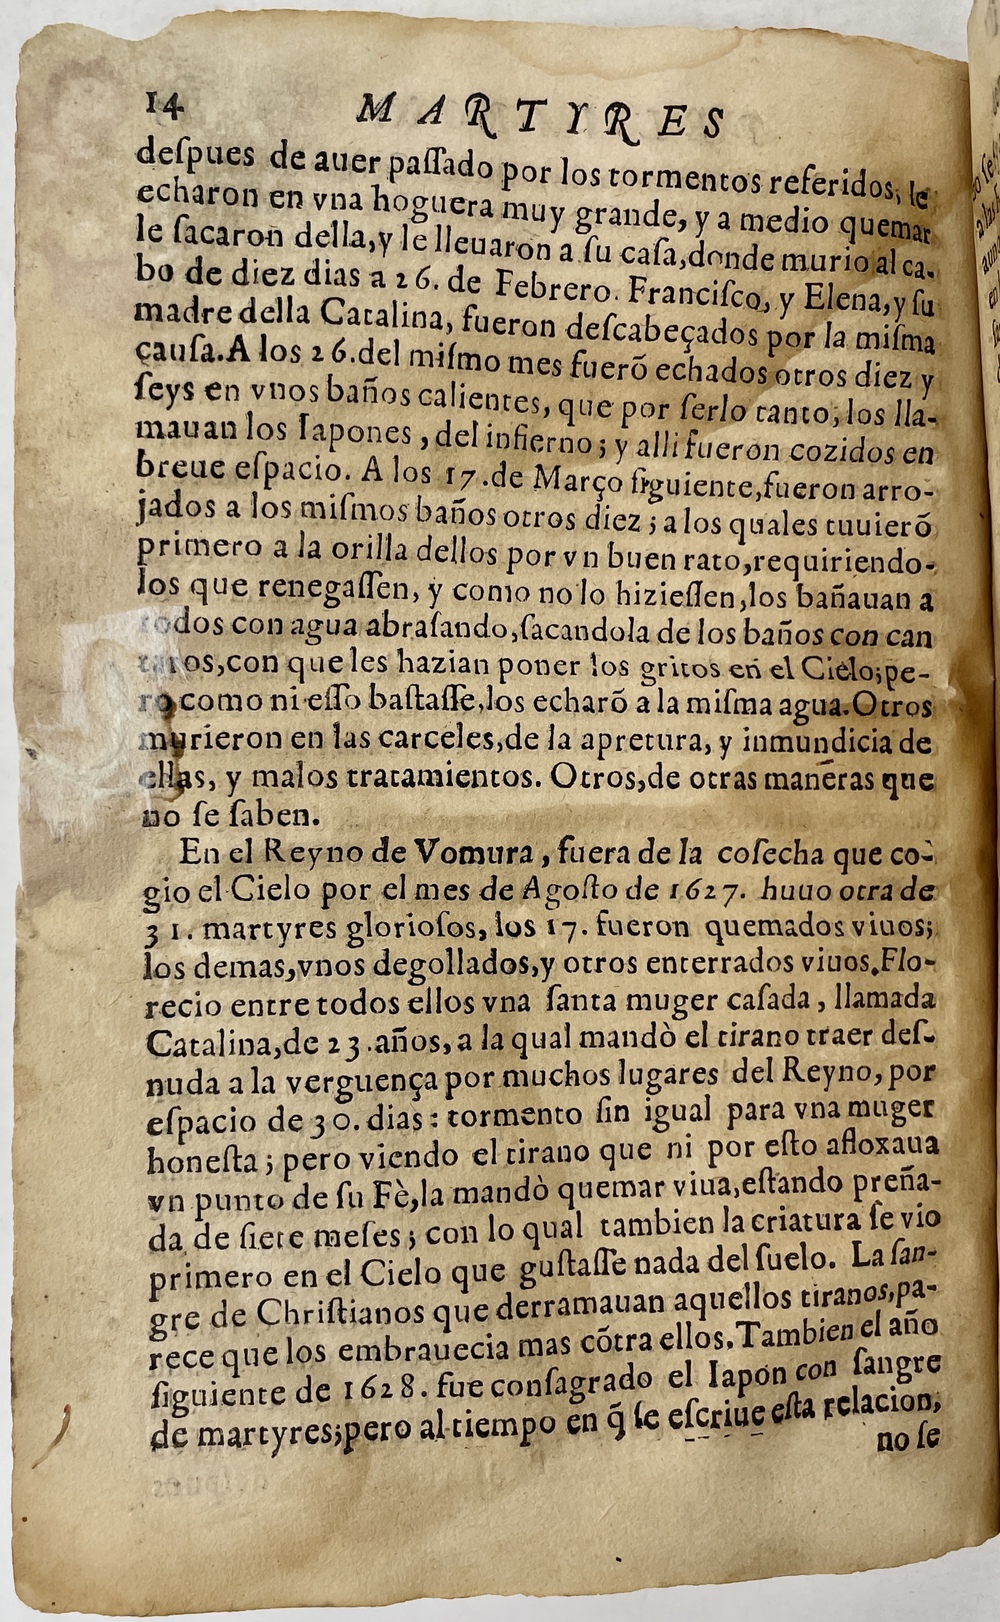 14 MARTYRES
deſpues de auer paſſado por los tormentos referidos, le
echaron en vna hoguera muy grande, y a medio quemar
le ſacaron della,y le lleuaron a ſu caſa,donde murio al ca-
bo de diez dias a 26. de Febrero. Franciſco, y Elena,y ſu
madre della Catalina, fueron deſcabeçados por la miſma
cauſa.A los 26.del miſmo mes fuerõ echados otros diez y
ſeys en vnos baños calientes, que por ſerlo tanto, los lla-
mauan los Iapones , del infierno; y alli fueron cozidos en
breue eſpacio. A los 17.de Março ſiguiente,fueron arro-
jados a los miſmos baños otros diez ; a los quales tuuierõ
primero a la orilla dellos por vn buen rato,requiriendo-
los que renegaſſen, y como no lo hizieſſen,los bañauan a
todos con agua abraſando,ſacandola de los baños con can
taros,con que les hazian poner los gritos en el Cielo;pe-
ro como ni eſſo baſtaſſe,los echarõ a la miſma agua.Otros
murieron en las carceles,de la apretura, y inmundicia de
ellas, y malos tratamientos. Otros,de otras maneras que
no ſe ſaben.
En el Reyno de Vomura , fuera de la coſecha que co-
gio el Cielo por el mes de Agoſto de 1627. huuo otra de
31. martyres glorioſos, los 17. fueron quemados viuos;
los demas,vnos degollados,y otros enterrados viuos.Flo-
recio entre todos ellos vna ſanta muger caſada , llamada
Catalina,de 23.años, a la qual mandò el tirano traer deſ-
nuda a la verguença por muchos lugares del Reyno, por
eſpacio de 30. dias : tormento ſin igual para vna muger
honeſta ; pero viendo el tirano que ni por eſto afloxaua
vn punto de ſu Fè,la mandò quemar viua,eſtando preña-
da de ſiete meſes ; con lo qual tambien la criatura ſe vio
primero en el Cielo que guſtaſſe nada del ſuelo. La ſan-
gre de Chriſtianos que derramauan aquellos tiranos,pa-
rece que los embrauecia mas cõtra ellos.Tambien el año
ſiguiente de 1628. fue conſagrado el Iapon con ſangre
de martyres;pero al tiempo en q̃ ſe eſcriue eſta relacion,
no ſe